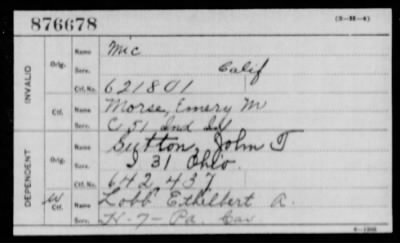 876678 (3-211-4)
INVALID
Orig. Name Mic
Serv. Calif
Ctf. No. 621801
Ctf. Name Morse, Emery M
Serv. C 51 Ind
DEPENDENT
Orig. Name Sutton, John T
Serv. I 31 Ohio.
Ctf. No. 642,437
W Ctf. Name Lobb Ethelbert A.
Serv. H-7- Pa. Cav